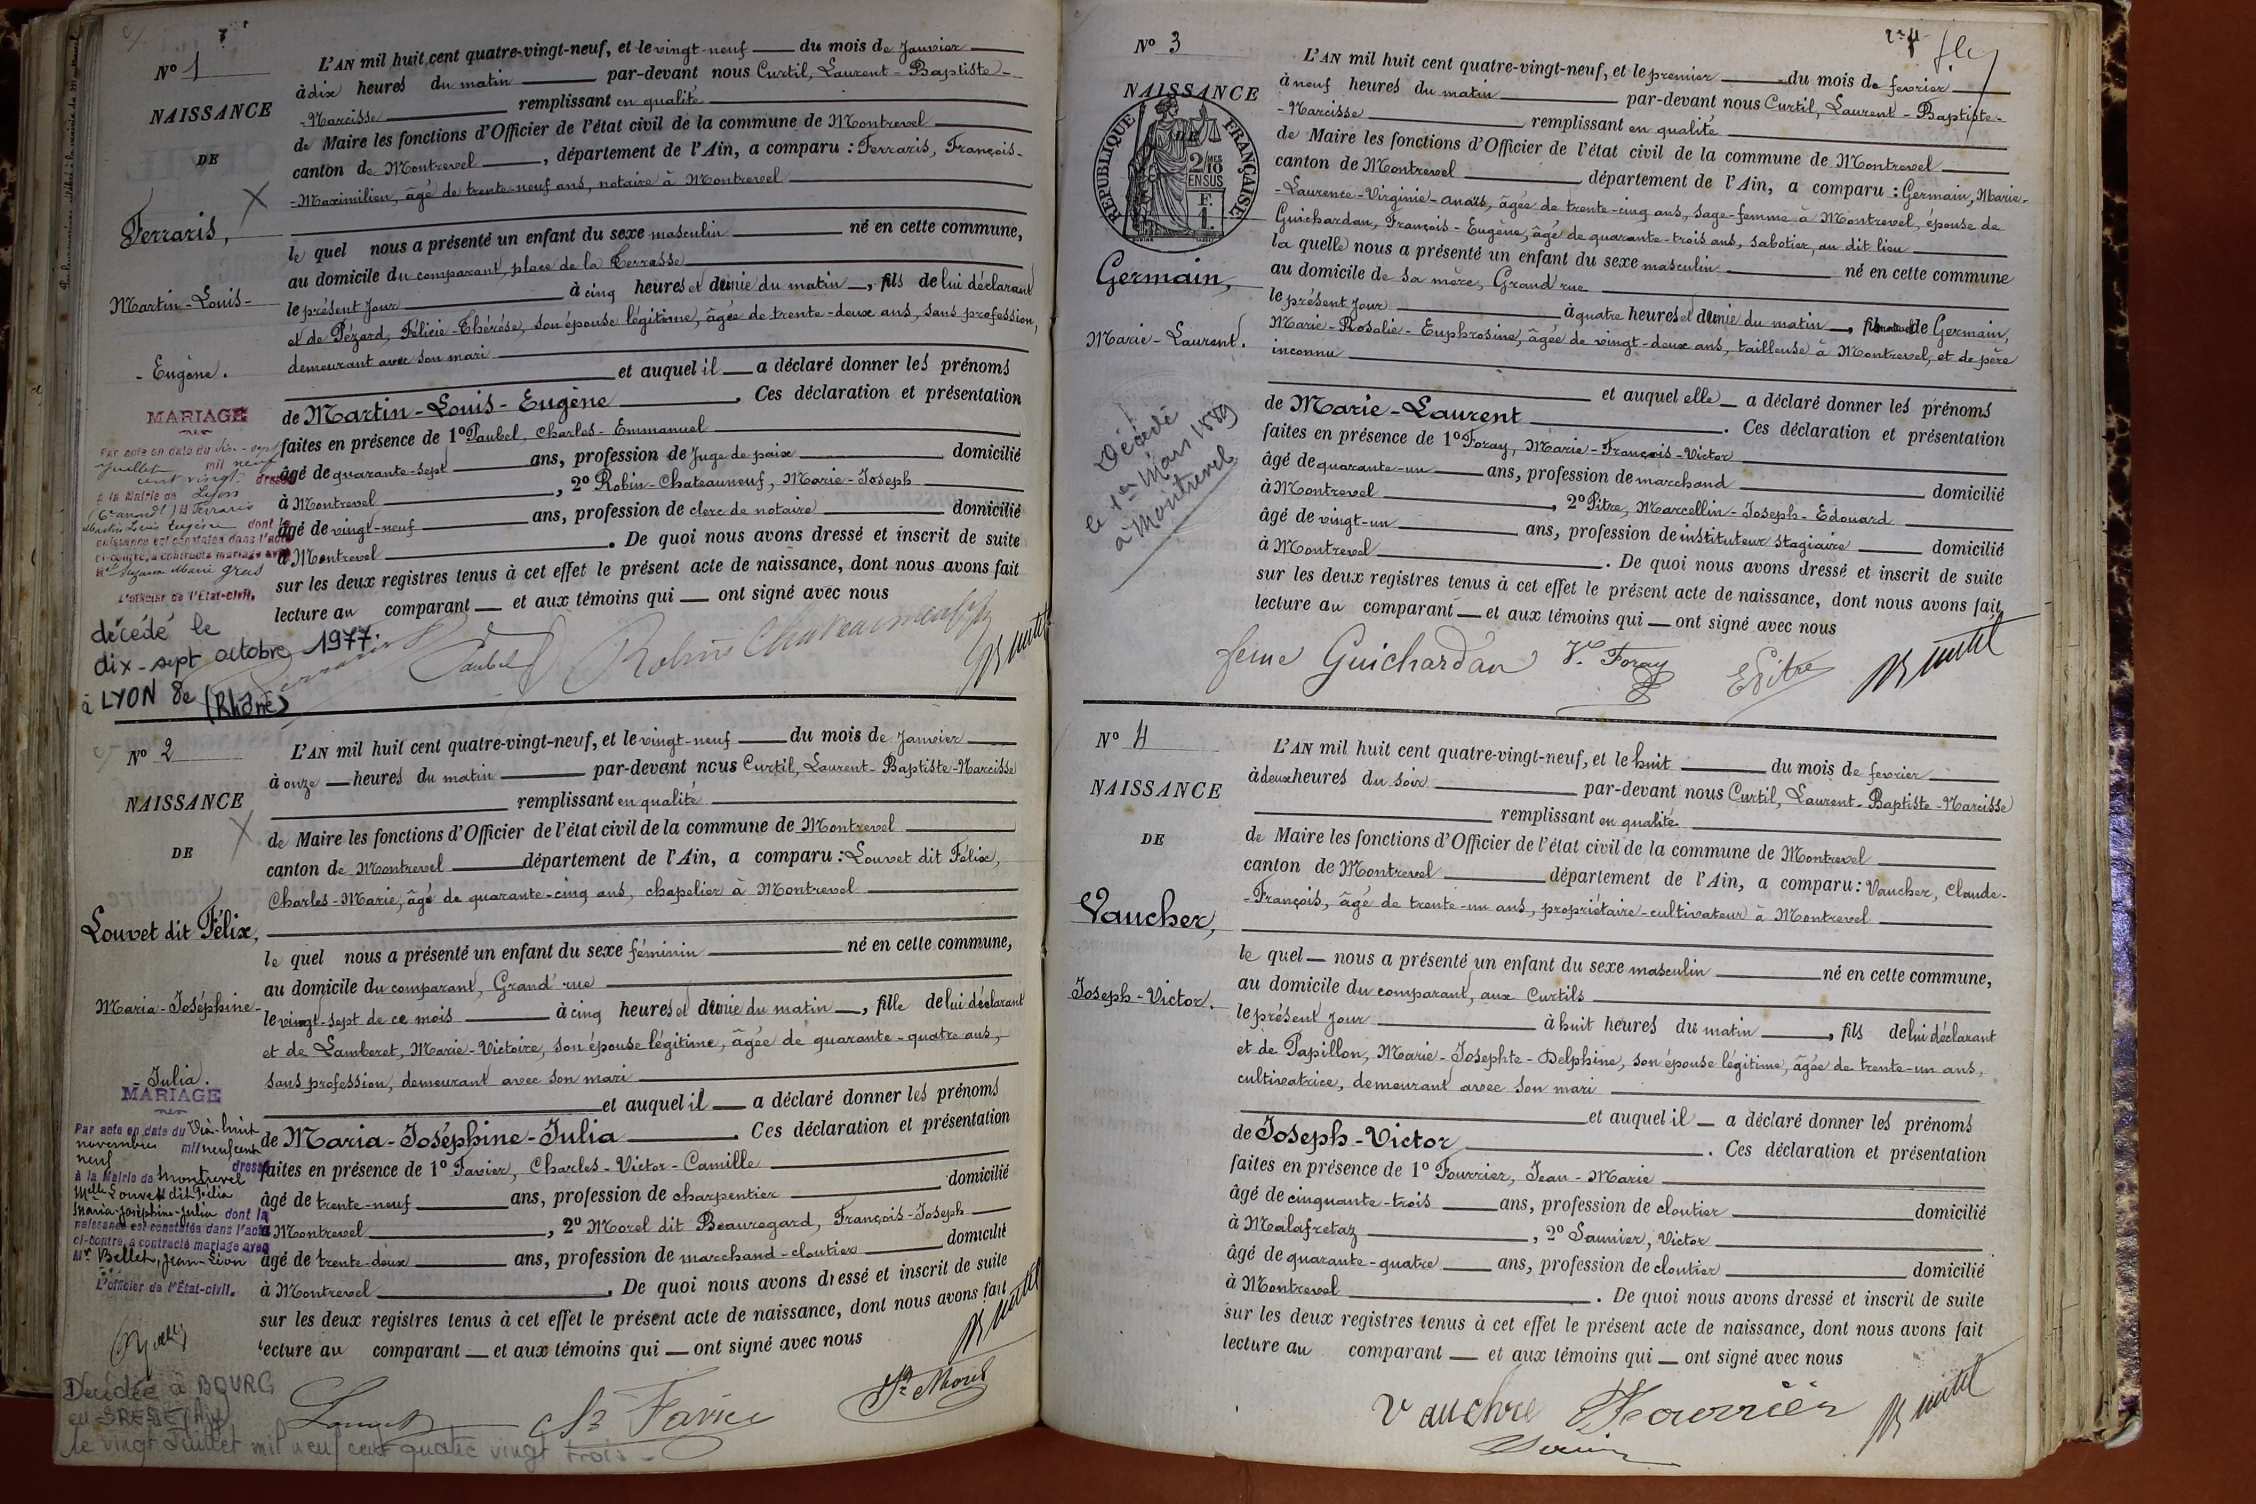 7
Nº 1
NAISSANCE
DE
Ferraris,
Martin-Louis-
-Eugène.
L'AN mil huit cent quatre-vingt-neuf, et le vingt-neuf du mois de Janvier
à dix heures du matin par-devant nous Curtil, Laurent-Baptiste-
-Narcisse remplissant en qualité
de Maire les fonctions d'Officier de l'état civil de la commune de Montrevel
canton de Montrevel, département de l'Ain, a comparu : Ferraris, François-
-Maximilien, âgé de trente-neuf ans, notaire à Montrevel
le quel nous a présenté un enfant du sexe masculin né en cette commune,
au domicile du comparant, place de la Terrasse
le présent jour à cinq heures et demie du matin, fils de lui déclarant
et de Pézard, Félicie-Thérése, son épouse légitime, âgée de trente-deux ans, sans profession,
demeurant avec son mari
et auquel il a déclaré donner les prénoms
de Martin-Louis-Eugène. Ces déclaration et présentation
faites en présence de 1º Paubel, Charles-Emmanuel
âgé de quarante-sept ans, profession de Juge de paix domicilié
à Montrevel, 2º Robin-Chateauneuf, Marie-Joseph
âgé de vingt-neuf ans, profession de clerc de notaire domicilié
à Montrevel. De quoi nous avons dressé et inscrit de suite
sur les deux registres tenus à cet effet le présent acte de naissance, dont nous avons fait
lecture au comparant et aux témoins qui ont signé avec nous
MARIAGE
Par acte en date du dix-sept
Juillet mil neuf
cent vingt dressé
à la Mairie de Lyon
Ferraris
Martin Louis Eugène dont la
naissance est constatée dans l'acte
ci-contre, a contracté mariage avec
Marie
L'Officier de l'État-civil.
décédé le
dix-sept octobre 1977.
à LYON 8e (Rhône)
Paubel Robin Chateauneuf
Nº 2
NAISSANCE
DE
Louvet dit Félix,
Maria-Joséphine-
-Julia.
L'AN mil huit cent quatre-vingt-neuf, et le vingt-neuf du mois de Janvier
à onze heures du matin par-devant nous Curtil, Laurent-Baptiste-Narcisse
remplissant en qualité
de Maire les fonctions d'Officier de l'état civil de la commune de Montrevel
canton de Montrevel département de l'Ain, a comparu : Louvet dit Félix,
Charles-Marie, âgé de quarante-cinq ans, chapelier à Montrevel
le quel nous a présenté un enfant du sexe féminin né en cette commune,
au domicile du comparant, Grand'rue
le vingt-sept de ce mois à cinq heures et demie du matin, fille de lui déclarant
et de Lamberet, Marie-Victoire, son épouse légitime, âgée de quarante-quatre ans,
sans profession, demeurant avec son mari
et auquel il a déclaré donner les prénoms
de Maria-Joséphine-Julia. Ces déclaration et présentation
faites en présence de 1º Favier, Charles-Victor-Camille
âgé de trente-neuf ans, profession de charpentier domicilié
à Montrevel, 2º Morel dit Beauregard, François-Joseph
âgé de trente-deux ans, profession de marchand-cloutier domicilié
à Montrevel. De quoi nous avons dressé et inscrit de suite
sur les deux registres tenus à cet effet le présent acte de naissance, dont nous avons fait
lecture au comparant et aux témoins qui ont signé avec nous
MARIAGE
Par acte en date du Dix-huit
novembre mil neuf cent
neuf dressé
à la Mairie de Montrevel
Melle Louvet dit Félix
Maria-Joséphine-Julia dont la
naissance est constatée dans l'acte
ci-contre, a contracté mariage avec
Mr Bellet, Jean-Léon
L'Officier de l'État-civil.
Décédée à BOURG
en BRESSE (Ain)
le vingt Juillet mil neuf cent quatre vingt trois-
Louvet Ch Favier Morel
Nº 3
NAISSANCE
DE
RÉPUBLIQUE FRANÇAISE
2/10 MES
EN SUS
F.
1.
Germain,
Marie-Laurent.
L'AN mil huit cent quatre-vingt-neuf, et le premier du mois de fevrier
à neuf heures du matin par-devant nous Curtil, Laurent-Baptiste-
-Narcisse remplissant en qualité
de Maire les fonctions d'Officier de l'état civil de la commune de Montrevel
canton de Montrevel, département de l'Ain, a comparu : Germain, Marie-
-Laurence-Virginie-Anaïs, âgée de trente-cinq ans, sage-femme à Montrevel, épouse de
Guichardan, François-Eugène, âgé de quarante-trois ans, sabotier, au dit lieu
la quelle nous a présenté un enfant du sexe masculin né en cette commune
au domicile de sa mère, Grand'rue
le présent jour à quatre heures et demie du matin, fils naturel de Germain,
Marie-Rosalie-Euphrosine, âgée de vingt-deux ans, tailleuse à Montrevel, et de père
inconnu
et auquel elle a déclaré donner les prénoms
de Marie-Laurent. Ces déclaration et présentation
faites en présence de 1º Foray, Marie-François-Victor
âgé de quarante-un ans, profession de marchand domicilié
à Montrevel, 2º Pitre, Marcellin-Joseph-Edouard
âgé de vingt-un ans, profession de instituteur stagiaire domicilié
à Montrevel. De quoi nous avons dressé et inscrit de suite
sur les deux registres tenus à cet effet le présent acte de naissance, dont nous avons fait
lecture au comparant et aux témoins qui ont signé avec nous
Décédé
le 1er Mars 1889
à Montrevel
feme Guichardan Vr Foray E Pitre
Nº 4
NAISSANCE
DE
Vaucher,
Joseph-Victor.
L'AN mil huit cent quatre-vingt-neuf, et le huit du mois de fevrier
à deux heures du soir par-devant nous Curtil, Laurent-Baptiste-Narcisse
remplissant en qualité
de Maire les fonctions d'Officier de l'état civil de la commune de Montrevel
canton de Montrevel département de l'Ain, a comparu : Vaucher, Claude-
-François, âgé de trente-un ans, propriétaire-cultivateur à Montrevel
le quel nous a présenté un enfant du sexe masculin né en cette commune,
au domicile du comparant, aux Curtils
le présent jour à huit heures du matin, fils de lui déclarant
et de Papillon, Marie-Josephte-Delphine, son épouse légitime, âgée de trente-un ans,
cultivatrice, demeurant avec son mari
et auquel il a déclaré donner les prénoms
de Joseph-Victor. Ces déclaration et présentation
faites en présence de 1º Fourrier, Jean-Marie
âgé de cinquante-trois ans, profession de cloutier domicilié
à Malafretaz, 2º Saunier, Victor
âgé de quarante-quatre ans, profession de cloutier domicilié
à Montrevel. De quoi nous avons dressé et inscrit de suite
sur les deux registres tenus à cet effet le présent acte de naissance, dont nous avons fait
lecture au comparant et aux témoins qui ont signé avec nous
Vauchre Fourrier